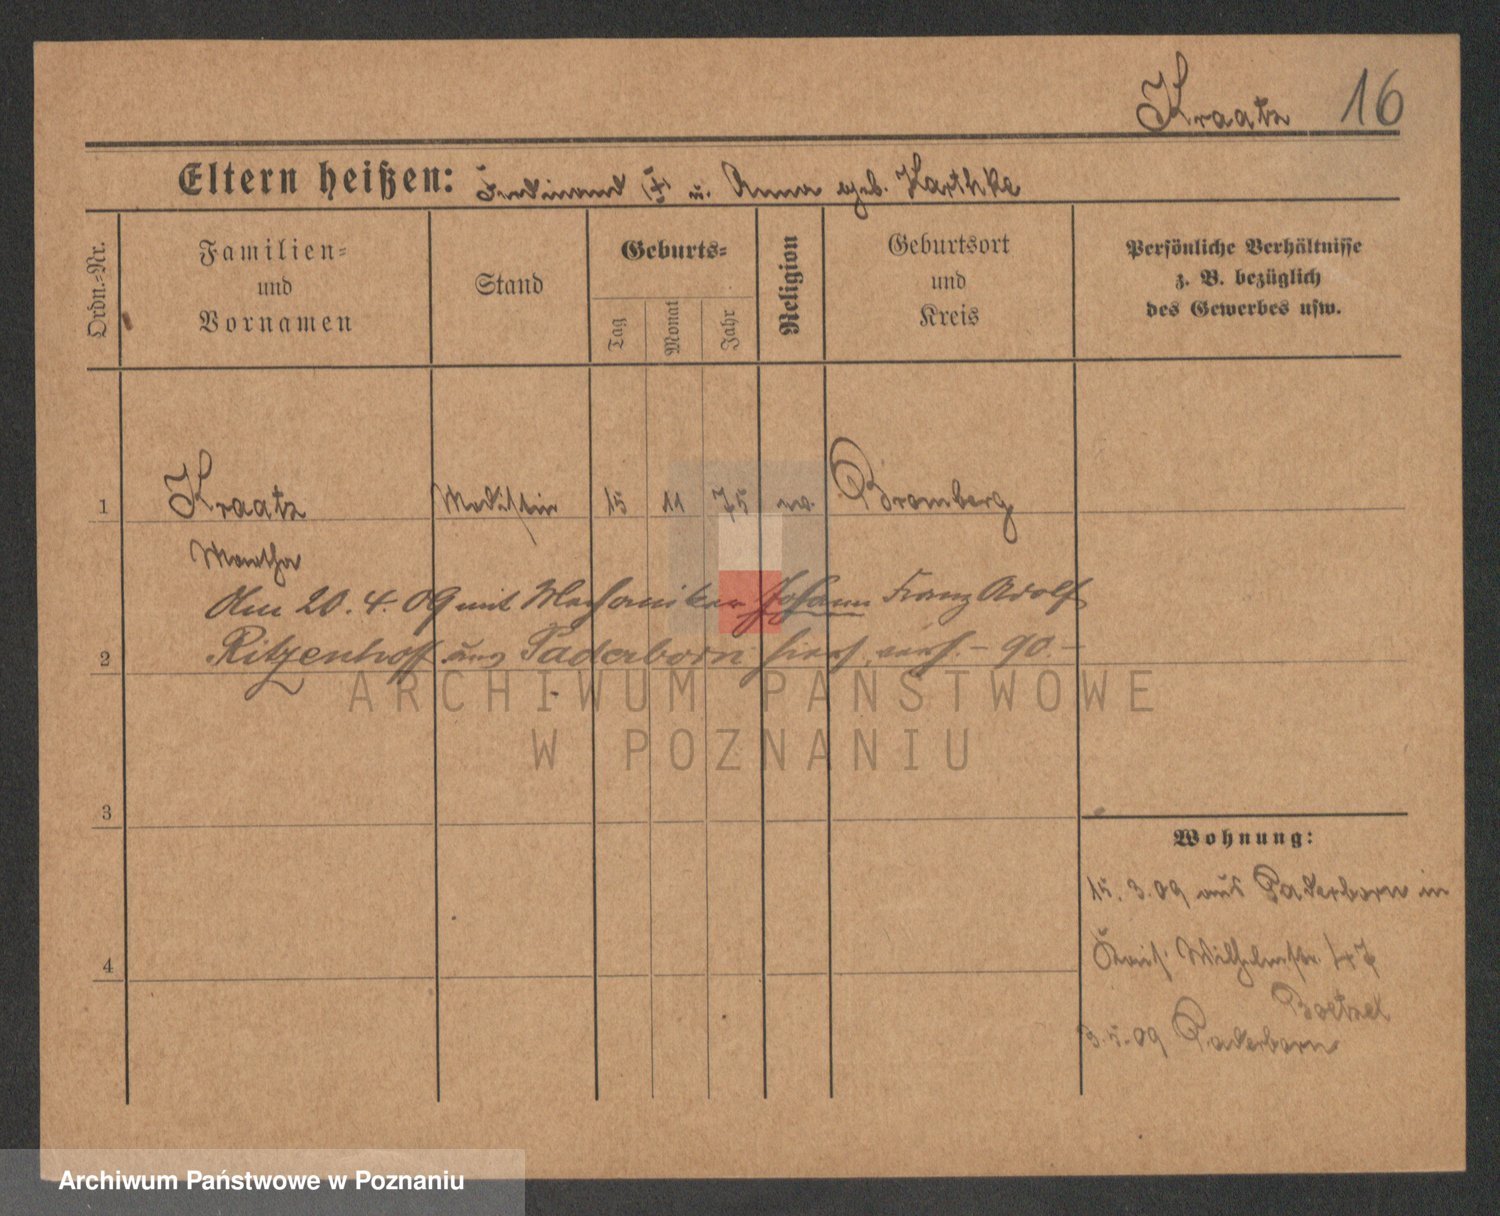 Kraatz 16
Eltern heißen: Ferdinand (†) u. Anna geb. Karthke
Ordn.=Nr.
Familien=
und
Vornamen
Stand
Geburts=
Tag
Monat
Jahr
Religion
Geburtsort
und
Kreis
Persönliche Verhältnisse
z. B. bezüglich
des Gewerbes usw.
1 Kraatz Modistin 15 11 75 ev. Bromberg
Martha
Am 20.4.09 mit Mechaniker Johann Franz Adolf
2 Ritzenhoff aus Paderborn hier verh. - 90 -
ARCHIWUM PAŃSTWOWE
W POZNANIU
3
Wohnung:
15.3.09 aus Paderborn in
Wilhelmstr. 47
4
Boetzel
3.5.09 Paderborn
Archiwum Państwowe w Poznaniu